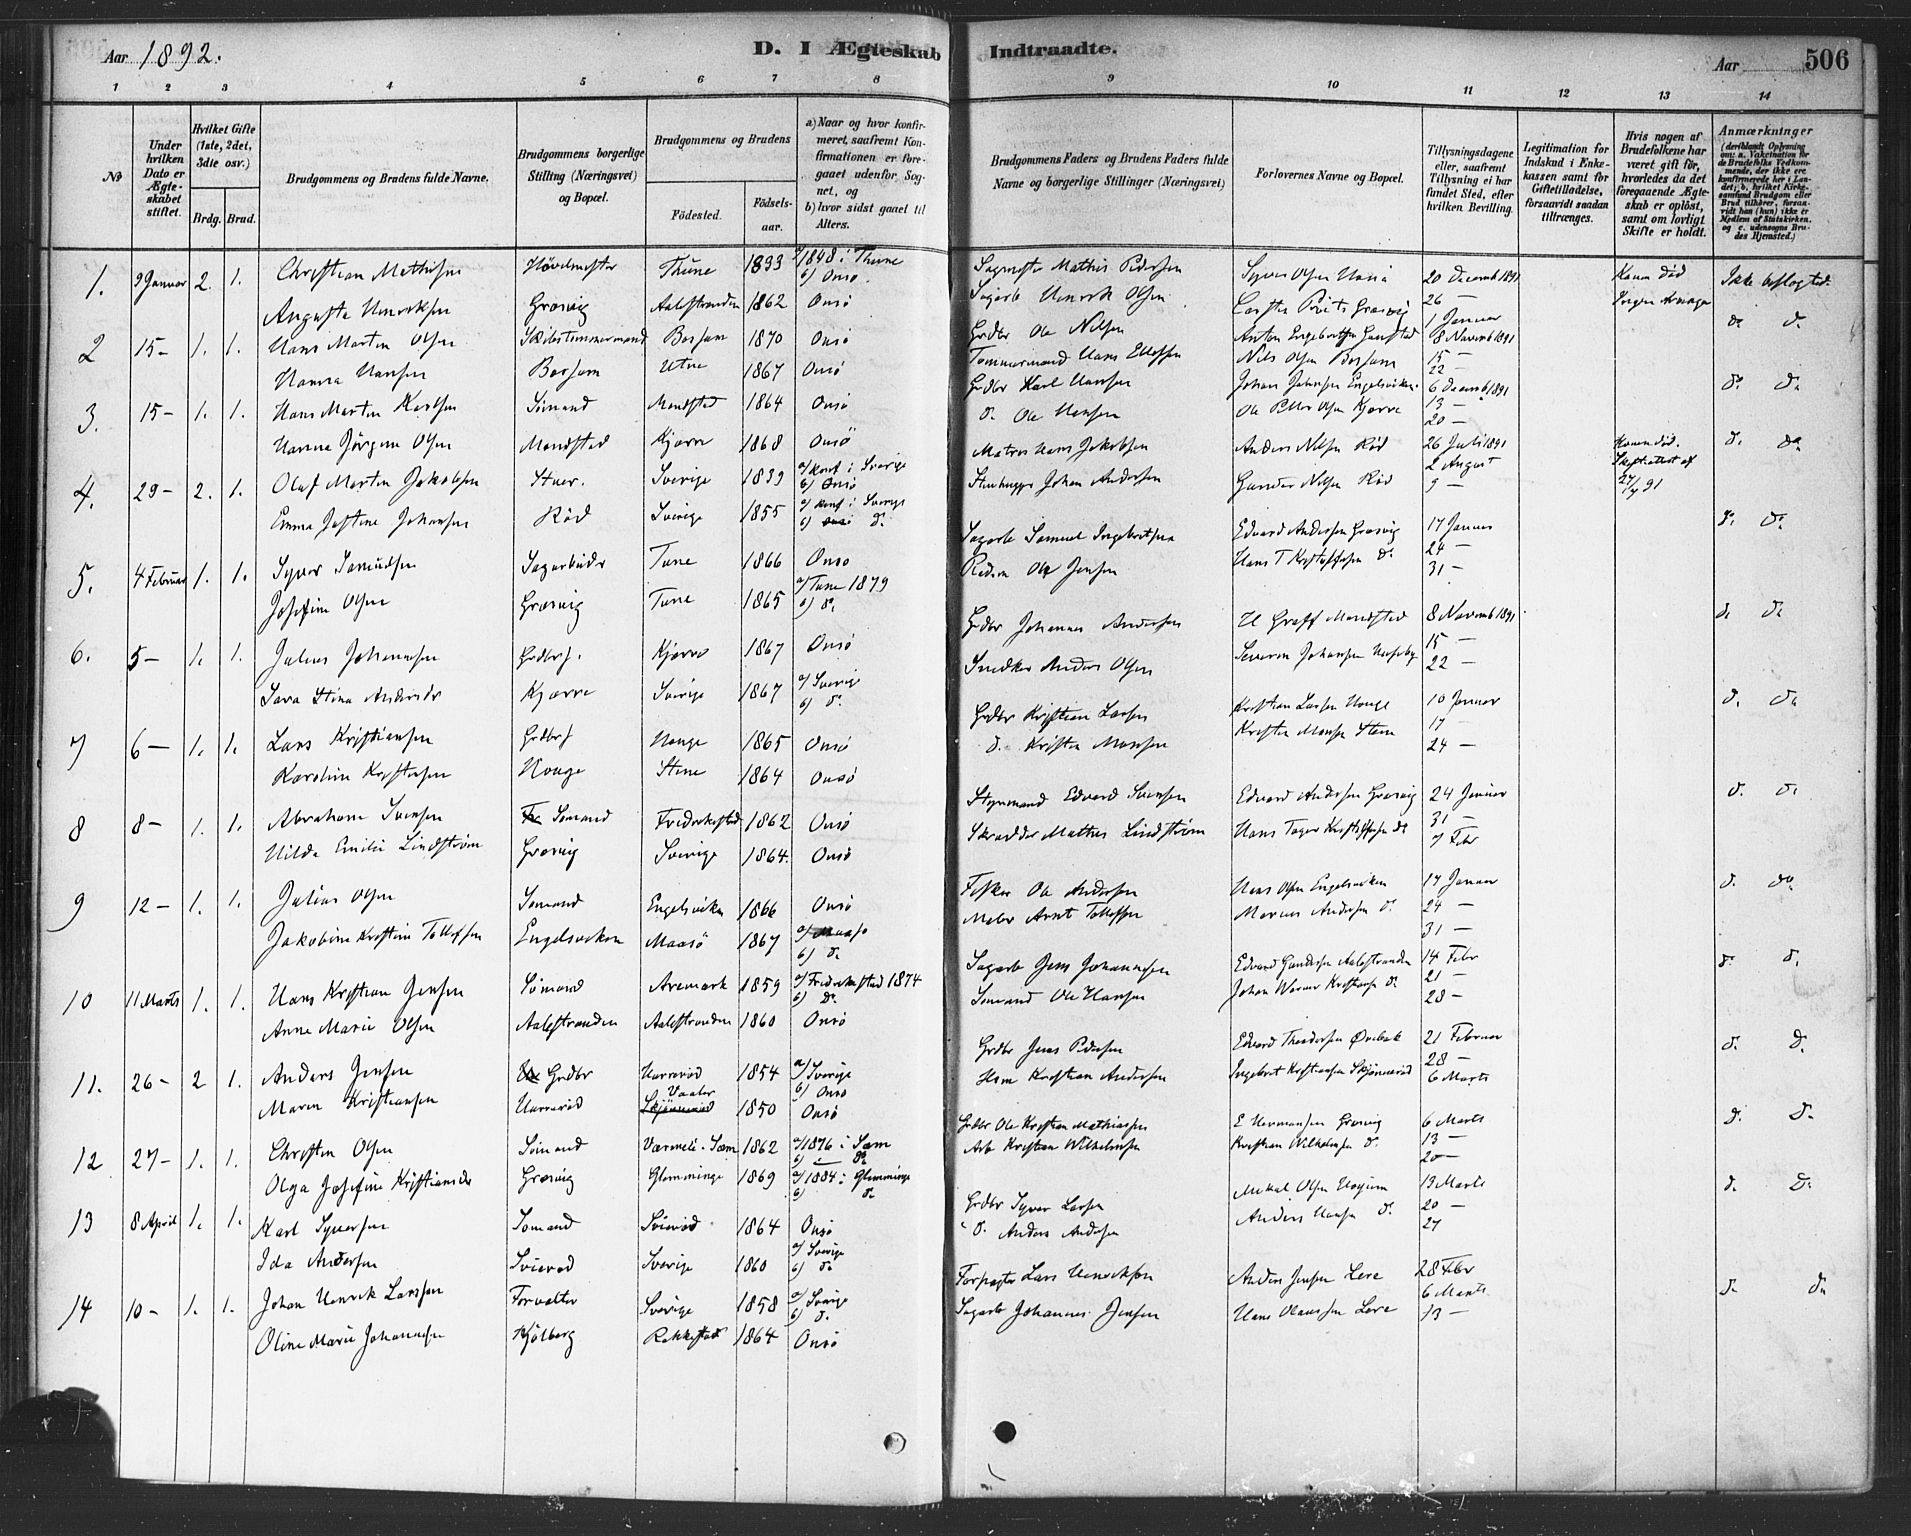 Aar 1892.
D. I Ægteskab Indtraadte.
Aar
506
1 2 3 4 5 6 7 8 9 10 11 12 13 14
No
Under hvilken Dato er Ægteskabet stiftet.
Hvilket Gifte (1ste, 2det, 3die osv.)
Brdg. Brud.
Brudgommens og Brudens fulde Navne.
Brudgommens borgerlige Stilling (Næringsvei) og Bopæl.
Brudgommens og Brudens
Födested.
Födselsaar.
a) Naar og hvor konfirmeret, saafremt Konfirmationen er foregaaet udenfor Sognet, og
b) hvor sidst gaaet til Alters.
Brudgommens Faders og Brudens Faders fulde Navne og borgerlige Stillinger (Næringsvei)
Forlovernes Navne og Bopæl.
Tillysningsdagene eller, saafremt Tillysning ei har fundet Sted, efter hvilken Bevilling.
Legitimation for Indskud i Ænkekassen samt for Giftetilladelse, forsaavidt saadan tiltrænges.
Hvis nogen af Brudefolkene har været gift för, hvorledes da det foregaaende Ægteskab er oplöst, samt om lovligt Skifte er holdt.
Anmærkninger (deriblandt Oplysning om: a. Vakcination for de Brudefolks Vedkommende, der ikke ere konfirmerede her i Landet; b. hvilket Kirkesamfund Brudgom eller Brud tilhörer, forsaavidt han (hun) ikke er Medlem af Statskirken, og c. udensogns Brudes Hjemsted.)
1. 9 Januar 2. 1. Christian Mathisen Thune 1833 a/1848 i Thune b) Onsö Mathis Pedersen Syver Olsen 20 Decemb 1891 Konen död Ikke beslægtede
Augusta Henriksen Græsvig Aalestranden 1862 Onsö Sagarb Henrik Olsen Græsvig 26 —
1 Januar
2 15 — 1. 1. Hans Martin Olsen Skibstømmermand Bossum 1870 Onsö Grdbr Ole Nilsen Anton Engebretsen 8 Novemb 1891 d. d.
Hanna Hansen Bossum Utne 1867 Onsö Tømmermand Hans Ellefsen Nils Olsen Bossum 15 —
22 —
3. 15 — 1. 1. Hans Martin Karlsen Sömand Mondstad 1864 Onsö Grdbr Karl Hansen Johan Johansen Engelsviken 6 Decemb 1891 d. d.
Hanna Jörgine Olsen Mondstad Kjærre 1868 Onsö d. Ole Hansen Ole Petter Olsen Kjærre 13 —
20 —
4. 29 — 2. 1. Olaf Martin Jakobsen Stuer. Sverige 1839 a/ konf i Sverige b) Onsö Matros Hans Jakobsen Anders Nilsen Röd 26 Juli 1891 Konen död. d. do
Emma Justine Johansen Röd Sverige 1855 a/ konf i Sverige b) d. Stenhugger Johan Andersen Gunder Nilsen Röd 2 August Skifteattest af
9 —
5. 4 Februar 1. 1. Syver Samuelsen Sagarbeider Tune 1866 Onsö Sagarb Samuel Ingebretsen Edvard Andersen Græsvig 17 Januar d. d.
Josefine Olsen Græsvig Tune 1865 a/ Tune 1879 b) d. Ole Jensen Hans T Kristoffersen d. 24 —
31 —
6. 5 — 1. 1. Julius Johannesen Grdbrs. Kjærre 1867 Onsö Grdbr Johannes Andersen H Graff Mondstad 8 Novemb 1891 d. d.
Sara Stina Andersdr Kjærre Sverige 1867 a/ Sverige b) d. Snedker Anders Olsen Severin Johansen 15 —
22 —
7 6 — 1. 1. Lars Kristiansen Grdbrs Hauge 1865 Onsö Grdbr Kristian Larsen Kristian Larsen Hauge 10 Januar d. d.
Karoline Kristensen Hauge Stene 1864 Onsö d. Kristen Monsen Kristen Monsen Stene 17
24 —
8 8 — 1. 1. Abraham Svensen Sömand Fredrikstad 1862 Onsö Styrmand Edvard Svensen Edvard Andersen Græsvig 24 Januar d. d.
Hilda Emilie Lindström Græsvig Sverige 1864. Onsö Skrædder Mathias Lindström Hans Kristoffersen d. 31 —
7 Febr
9 12 — 1. 1. Julius Olsen Sömand Engelsviken 1866 Onsö Fisker Ole Andersen Hans Olsen Engelsviken 17 Januar d. do
Jakobine Kristine Tollefsen Engelsviken Maasö 1867 a/ Maasö b) d. Maler Arnt Tollefsen Marius Andersen d. 24 —
31 —
10 11 Marts 1. 1. Hans Kristian Jensen Sömand Aremark 1859 a/ Fredrikstad 1874 b) do. Sagarb Jens Johannesen Edvard Gundersen Aalestranden 14 Febr d. d.
Anne Marie Olsen Aalestranden Aalestranden 1860 Onsö Sömand Ole Hansen Johan Werner d. 21 —
28 —
11. 26 — 2 1. Anders Jensen Grdbr Harrerød 1854 a/ Sverige b) Onsö Grdbr Jens Pedersen Edvard Theodorsen Örebæk 21 Februar d. d.
Maren Kristiansen Harrerød Vaaler 1850 Onsö Hsm Kristian Andersen Ingebret Kristiansen Skjönnerød 28 —
6 Marts
12 27 — 1. 1. Christen Olsen Sömand 1862 a/ 1876 i b) Grdbr Ole Kristian Mathiassen E Hermansen Græsvig 6 Marts d. d.
Olga Josefine Kristiansdr Græsvig Glemminge 1869 a/ 1884 i Glemminge b) d. Arb Kristian Wilhelmsen Kristian Wilhelmsen d. 13 —
20 —
13 8 April 1. 1. Karl Syversen Sömand 1864 Onsö Grdbr Syver Larsen Mikal Olsen 13 Marts d. d.
Ida Andersen Sverige 1860 a/ Sverige b) d. d. Anders Andersen Anders Hansen d. 20 —
27
14 10 — 1. 1. Johan Henrik Larsen Forvalter Sverige 1858 a/ Sverige b) d. Forpagter Lars Henriksen Anders Jensen Lere 28 Febr d. d.
Oline Marie Johannesen Kjölberg Rakkestad 1864 Onsö Sagarb Johannes Jensen Hans Olaussen Lere 6 Marts
13 —